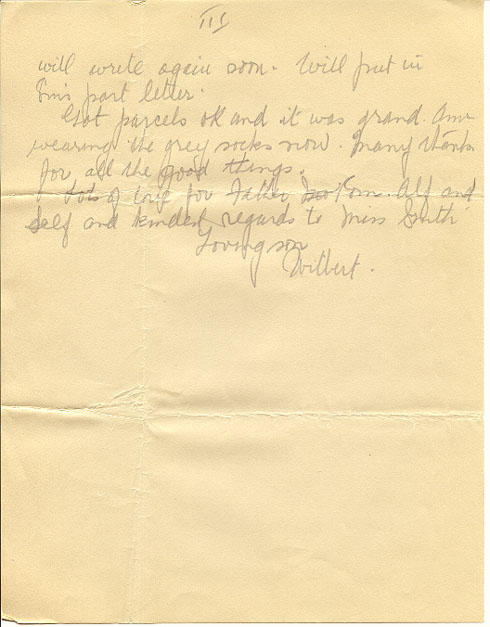 III
will write again soon. Will put in
Em's part letter.
Got parcels ok and it was grand. Am
wearing the grey socks now. Many thanks
for all the good things.
Lots of love for Father Tom. Alf and
self and kindest regards to Miss Smith
Loving son
Wilbert.